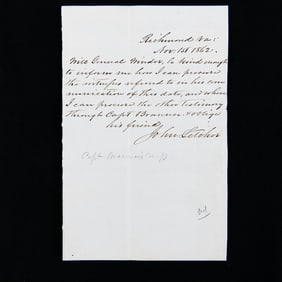 Richmond Va:
Nov. 1st 1862.
Will General Winder, be kind enough
to inform me how I can procure
the witnesses referred to in his com
munication of this date, and when
I can procure the other testimony
through Capt
his friend
John Letcher
Capt